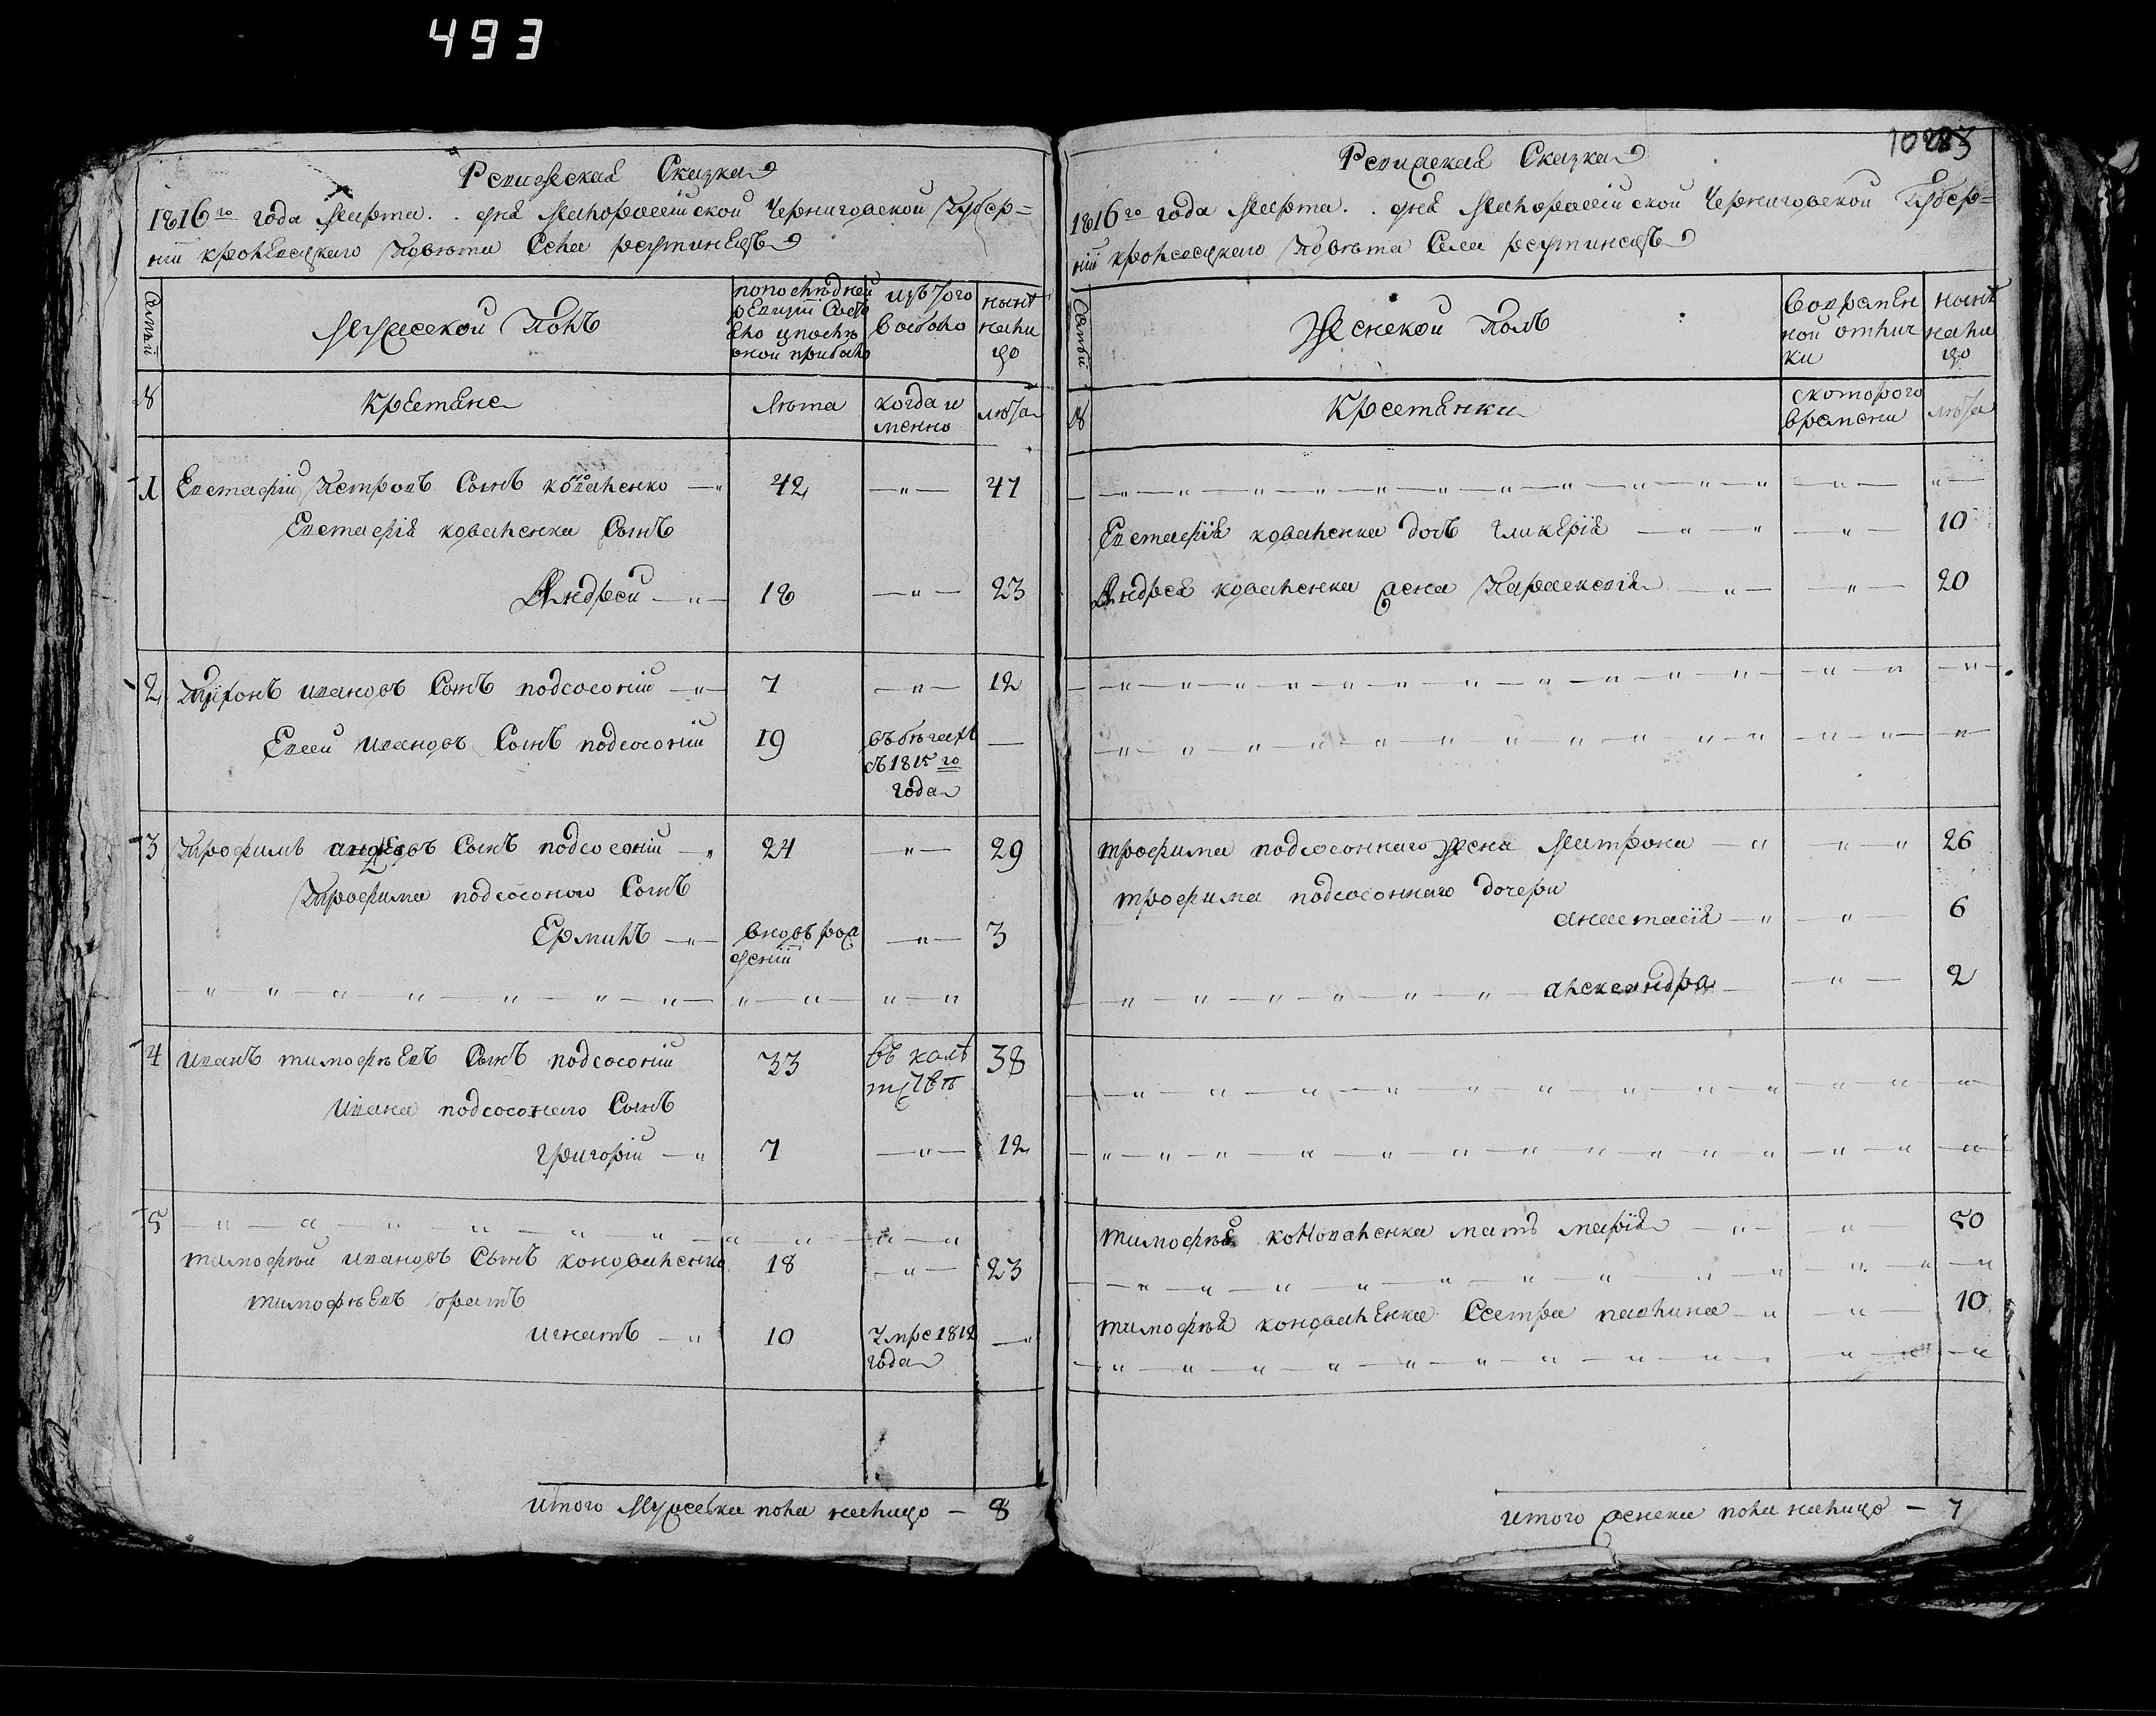 493
Ревижская Сказка
1816го года Марта . . дня Малоросійской Черниговской Губер=
ніи кролевецкого Повѣта Села реутинецъ
Семьи
Мужеской Полъ
попослѣдней
ревизіи Состо
яло и послѣ
оной прибыло
изъ того
выбыло
нынѣ
нали
цо
№
Крестяне
лѣта
когда и
менно
лѣта
1 Евстафій Петровъ Сынъ коваленко — 42 — " — 47
Евстафія коваленка Сынъ
Андрей — " — 18 — " — 23
2 Тихонъ ивановъ Сынъ подсосоній — " — 7 — " — 12
Евсей ивановъ Сынъ подсосоній 19 въ бѣгахъ —
съ 1815го
года
3 Трофимъ Сынъ подсосоній — " 24 — " — 29
Трофима подсосоного Сынъ
Ермилъ — " — вновь рож — " — 3
деній
4 иванъ тимофѣевъ Сынъ подсосоній 33 38
ивана подсосонаго Сынъ
григорій — " 7 — " — 12
5
тимофѣй ивановъ Сынъ коноваленко 18 — " — 23
тимофѣевъ братъ
игнатъ — " 10 Умре 1812 — "
года
итого Мужеска пола налицо — 8
Ревижская Сказка
1816го года Марта . . дня Малоросійской Черниговской Губер=
ніи кролевецкого Повѣта Села реутинецъ
Семьи
Женской полъ
Вовремен
ной отлуч
ки
нынѣ
нали
цо
№
Крестянки
скоторого
времени
лѣта
Евстафія коваленка дочь гликерія — " — " — " — 10
Андрея коваленка жена Параскевія — " — " — 20
трофима подсосонного жена Матрона — " — " — " 26
трофима подсосонного дочери
анастасія — " — " 6
александра — " — 2
тимофѣя коноваленка мать марія — " — " — 50
тимофѣя коноваленка Сестра палгина — " — " — 10
итого женска пола налицо — 7